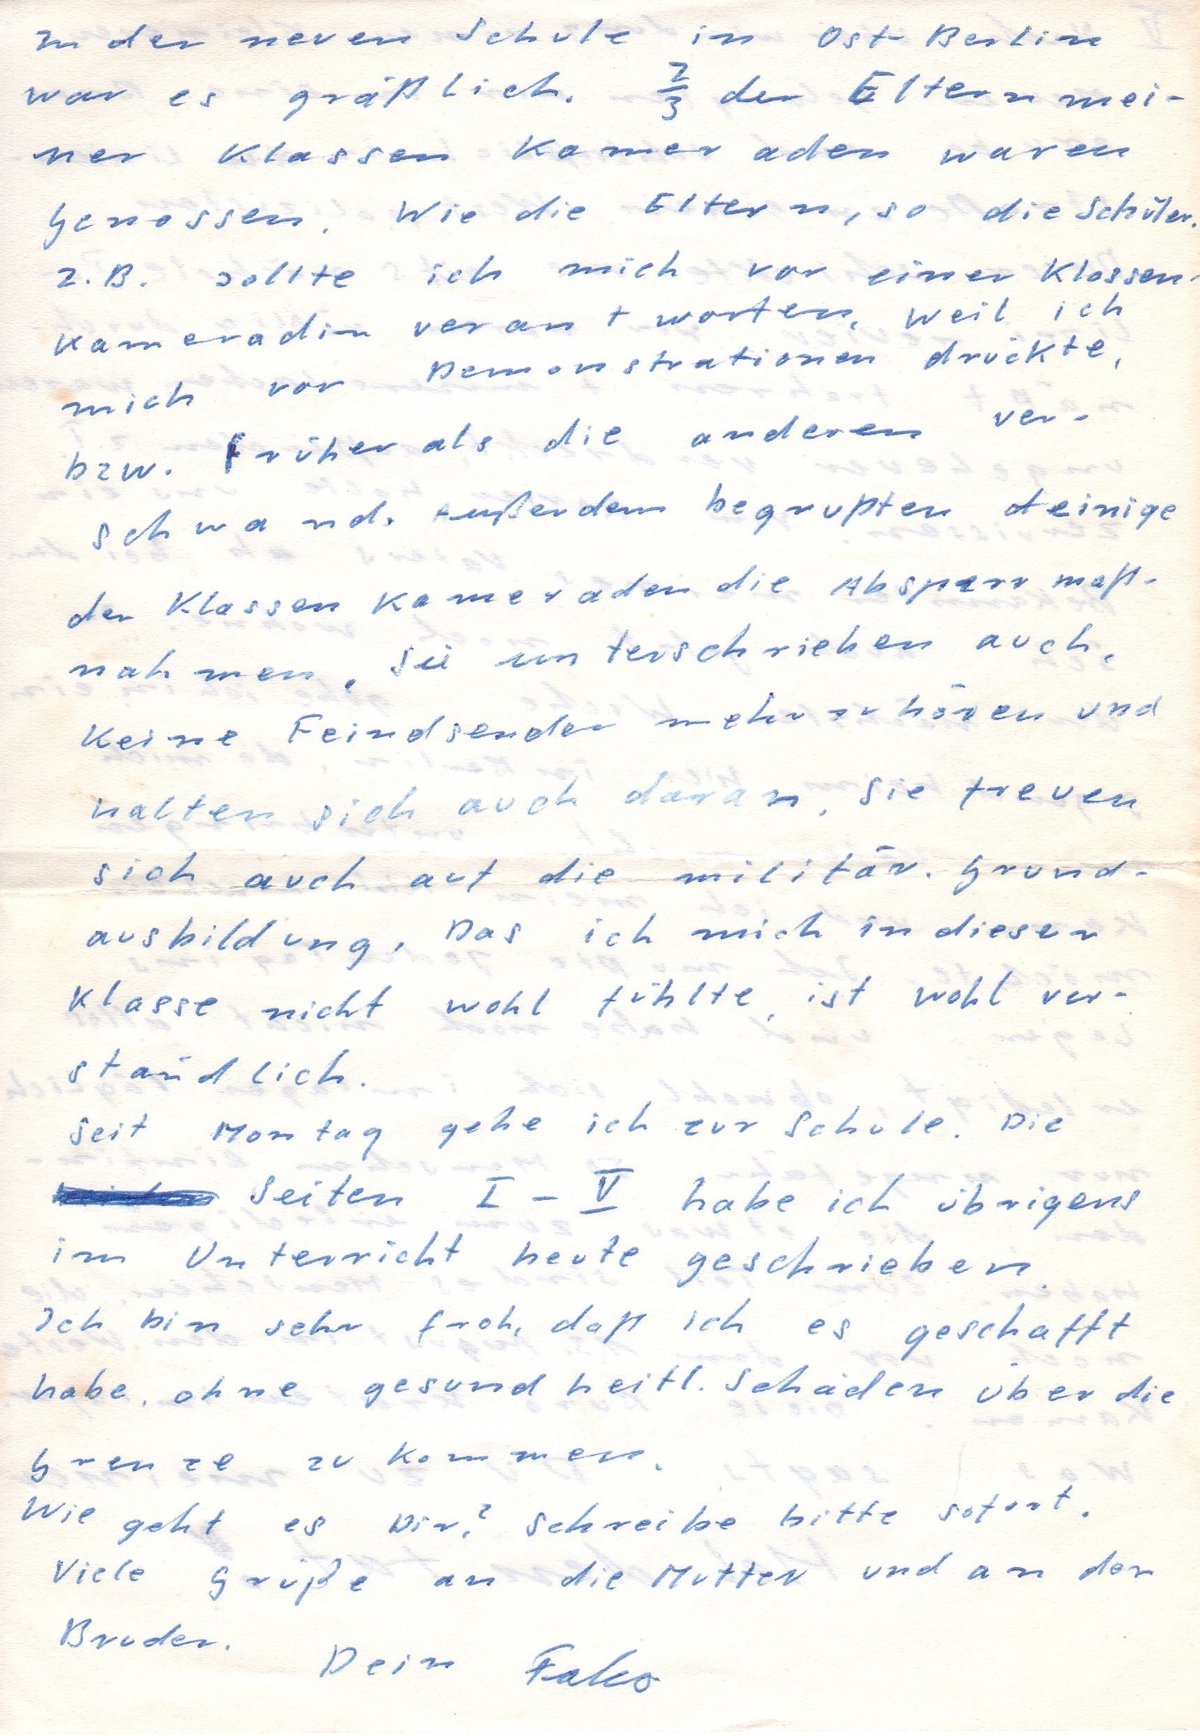 In der neuen Schule in Ost-Berlin
war es gräßlich. 2/3 der Eltern mei-
ner Klassen Kameraden waren
Genossen. Wie die Eltern, so die Schüler.
z.B. sollte ich mich vor einer Klassen-
kameradin verantworten, weil ich
mich vor Demonstrationen drückte,
bzw. früher als die anderen ver-
schwand. Außerdem begrüßten einige
der Klassen Kameraden die Absperr maß-
nahmen. Sie unterschrieben auch,
keine Feindsender mehr zu hören und
halten sich auch daran. Sie freuen
sich auch auf die militär. Grund-
ausbildung. Das ich mich in dieser
Klasse nicht wohl fühlte, ist wohl ver-
ständlich.
Seit Montag gehe ich zur Schule. Die
Seiten I – V habe ich übrigens
im Unterricht heute geschrieben.
Ich bin sehr froh, daß ich es geschafft
habe, ohne gesundheitl. Schäden über die
Grenze zu kommen.
Wie geht es Dir? Schreibe bitte sofort.
Viele Grüße an die Mutter und an den
Bruder.
Dein Falco